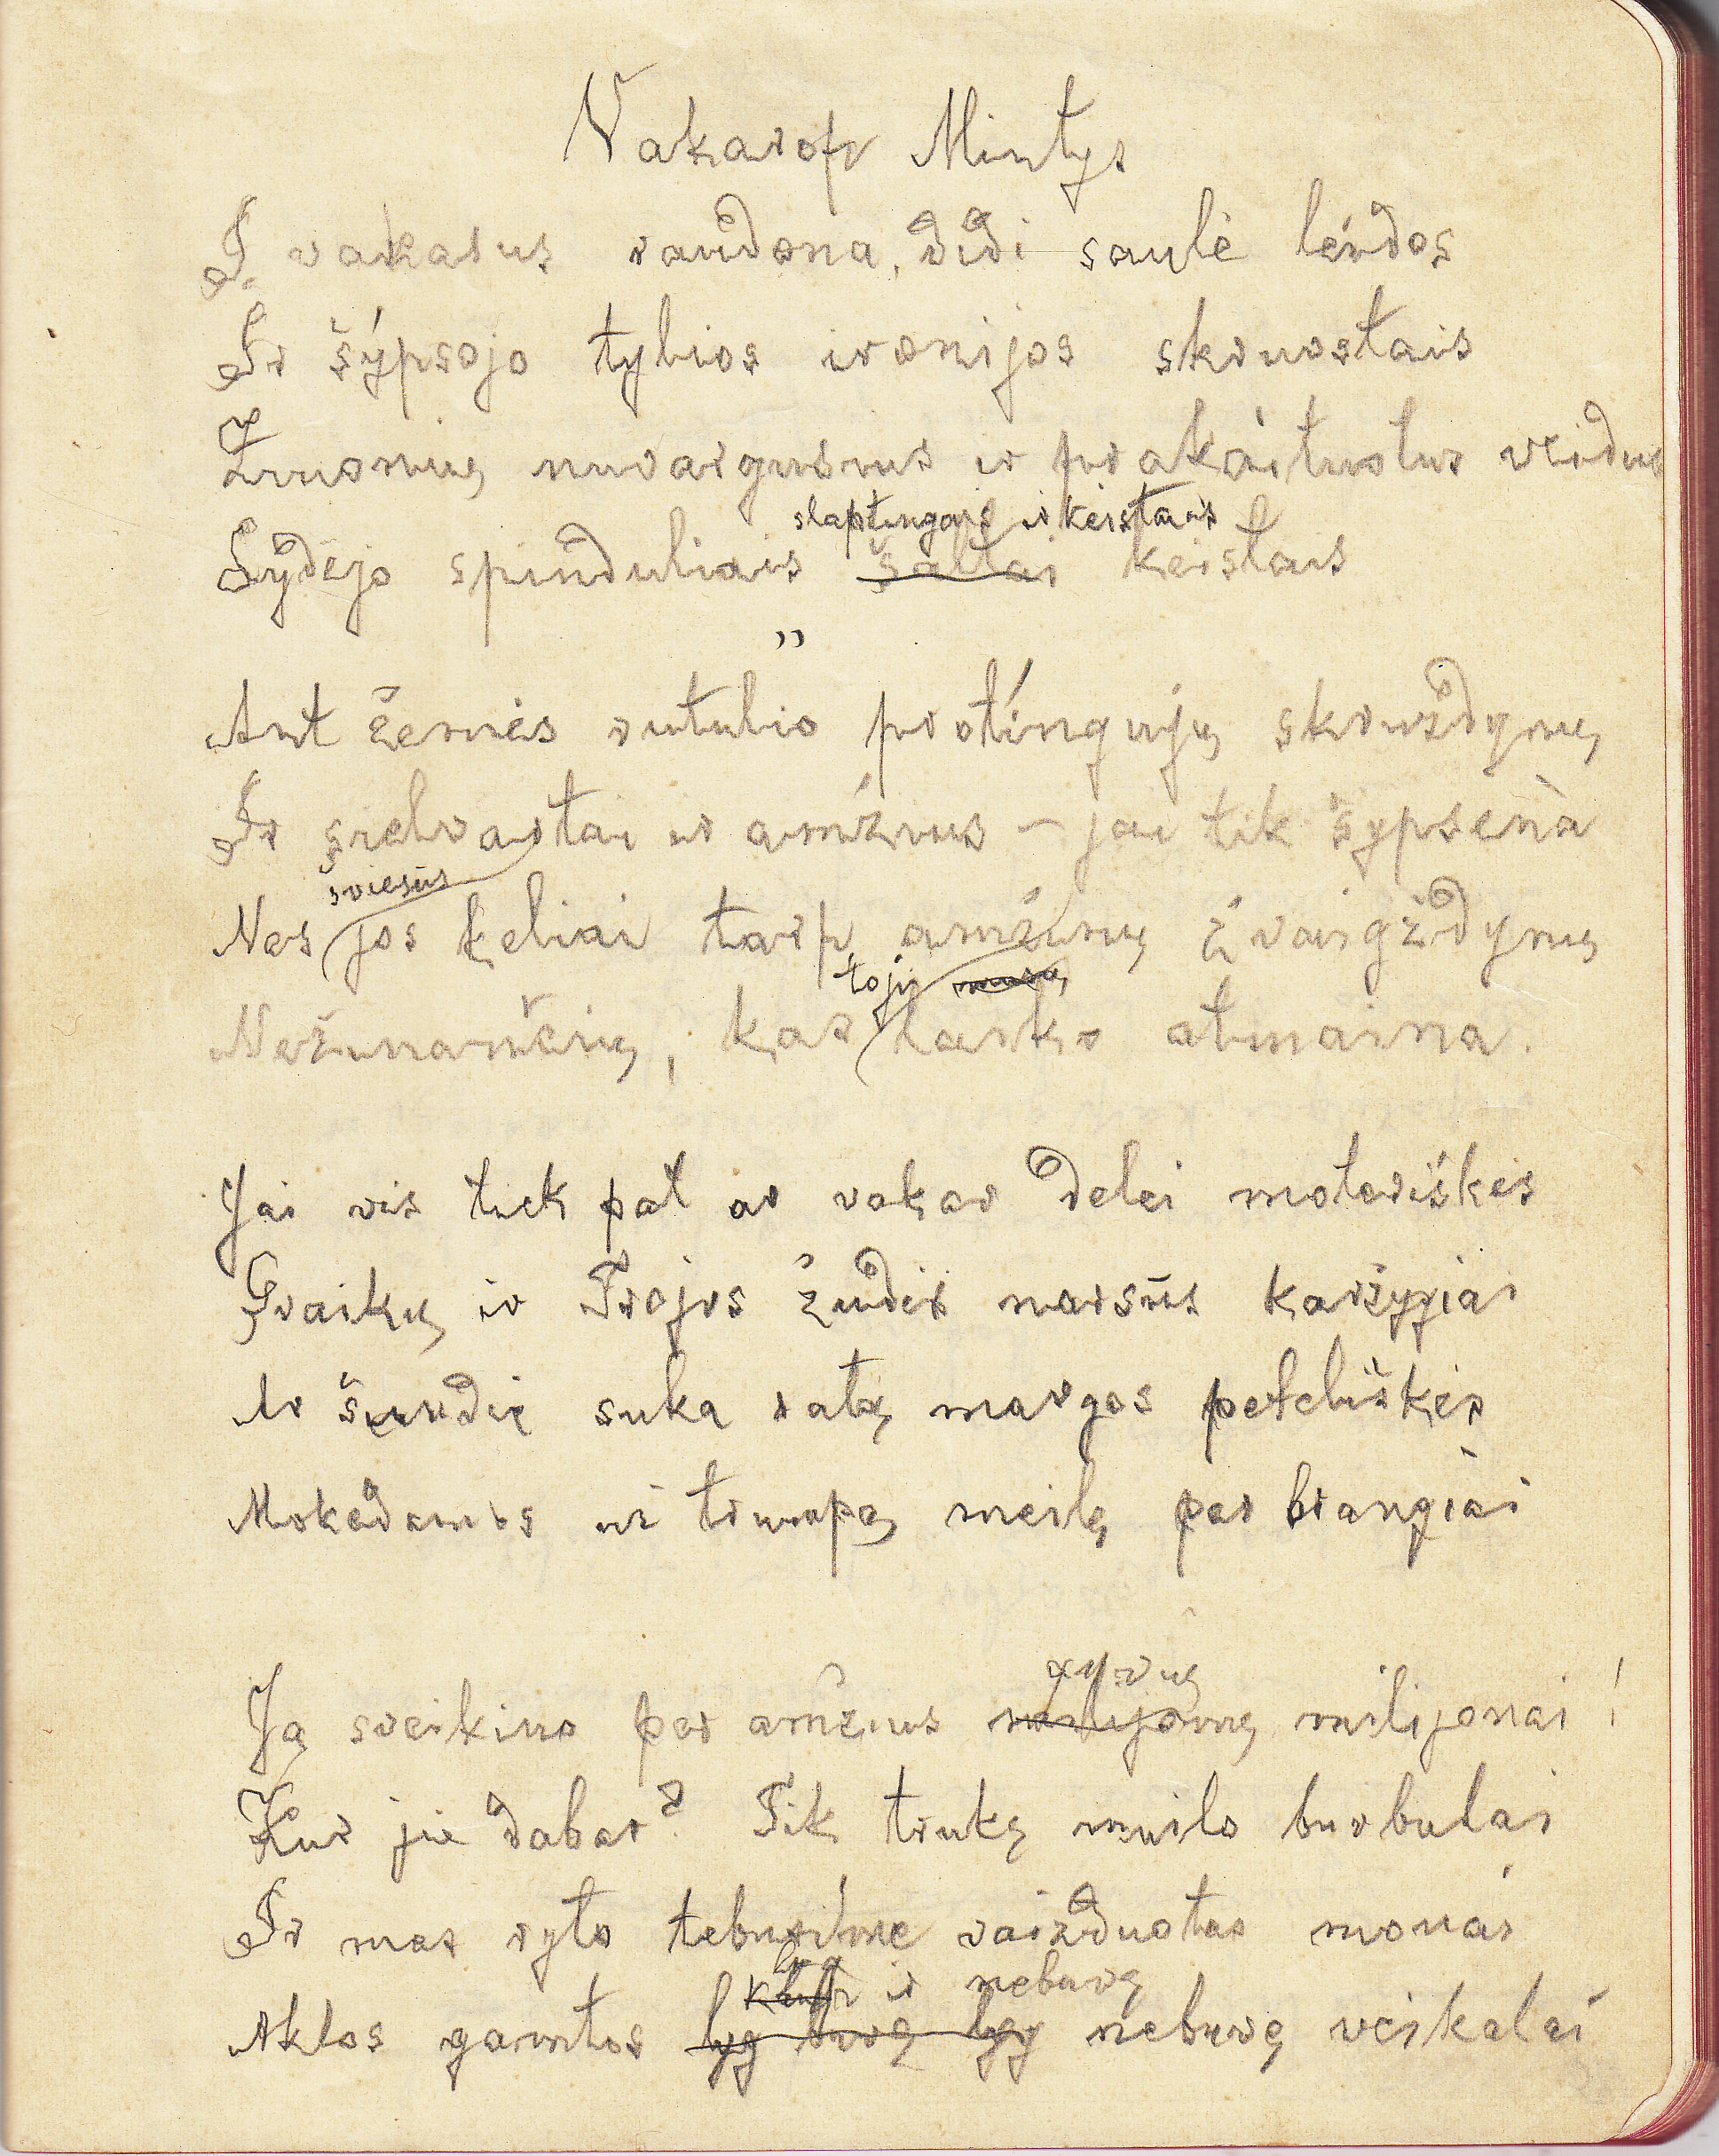 Vakarop Mintys
Į vakarus raudona, didi saulė léidos
Ir šýpsojo tylios ironijos skruostais
Žmonių nuvargusius ir prakaituotus veidus
slaptingais ir keistais
Lydėjo spinduliais šaltai keistais
"
Ant žemės rutulio protíngųjų skruzdynų
Ir sielvartai ir amžius – jai tik šypsena
šviesūs
Nes jos keliai tarp amžinų žvaigždynų
toji mūsų
Nežinančių, kas laiko atmaina.
Jai vis tiek pat ar vakar delei moteriškės
Graikų ir Trojos žudės narsūs karžygiai
Ar šiandie suka ratą margos peteliškės
Mokėdamos už trumpą meilę per brangiai
gyvių
Ją sveikino per amžius milijonų milijonai!
Kur jie dabar? Tik trukę muilo burbulai
Ir mes ryto tebusime vaizduotės monai
ir nebuvę
Aklos gamtos lyg buvę lyg nebuvę veikalai